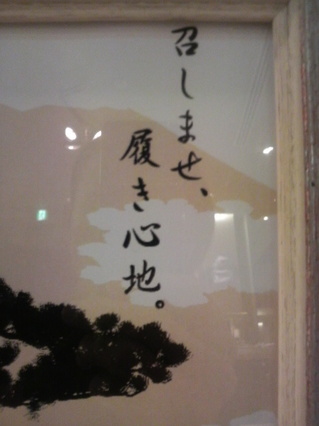 召しませ、
履き心地。